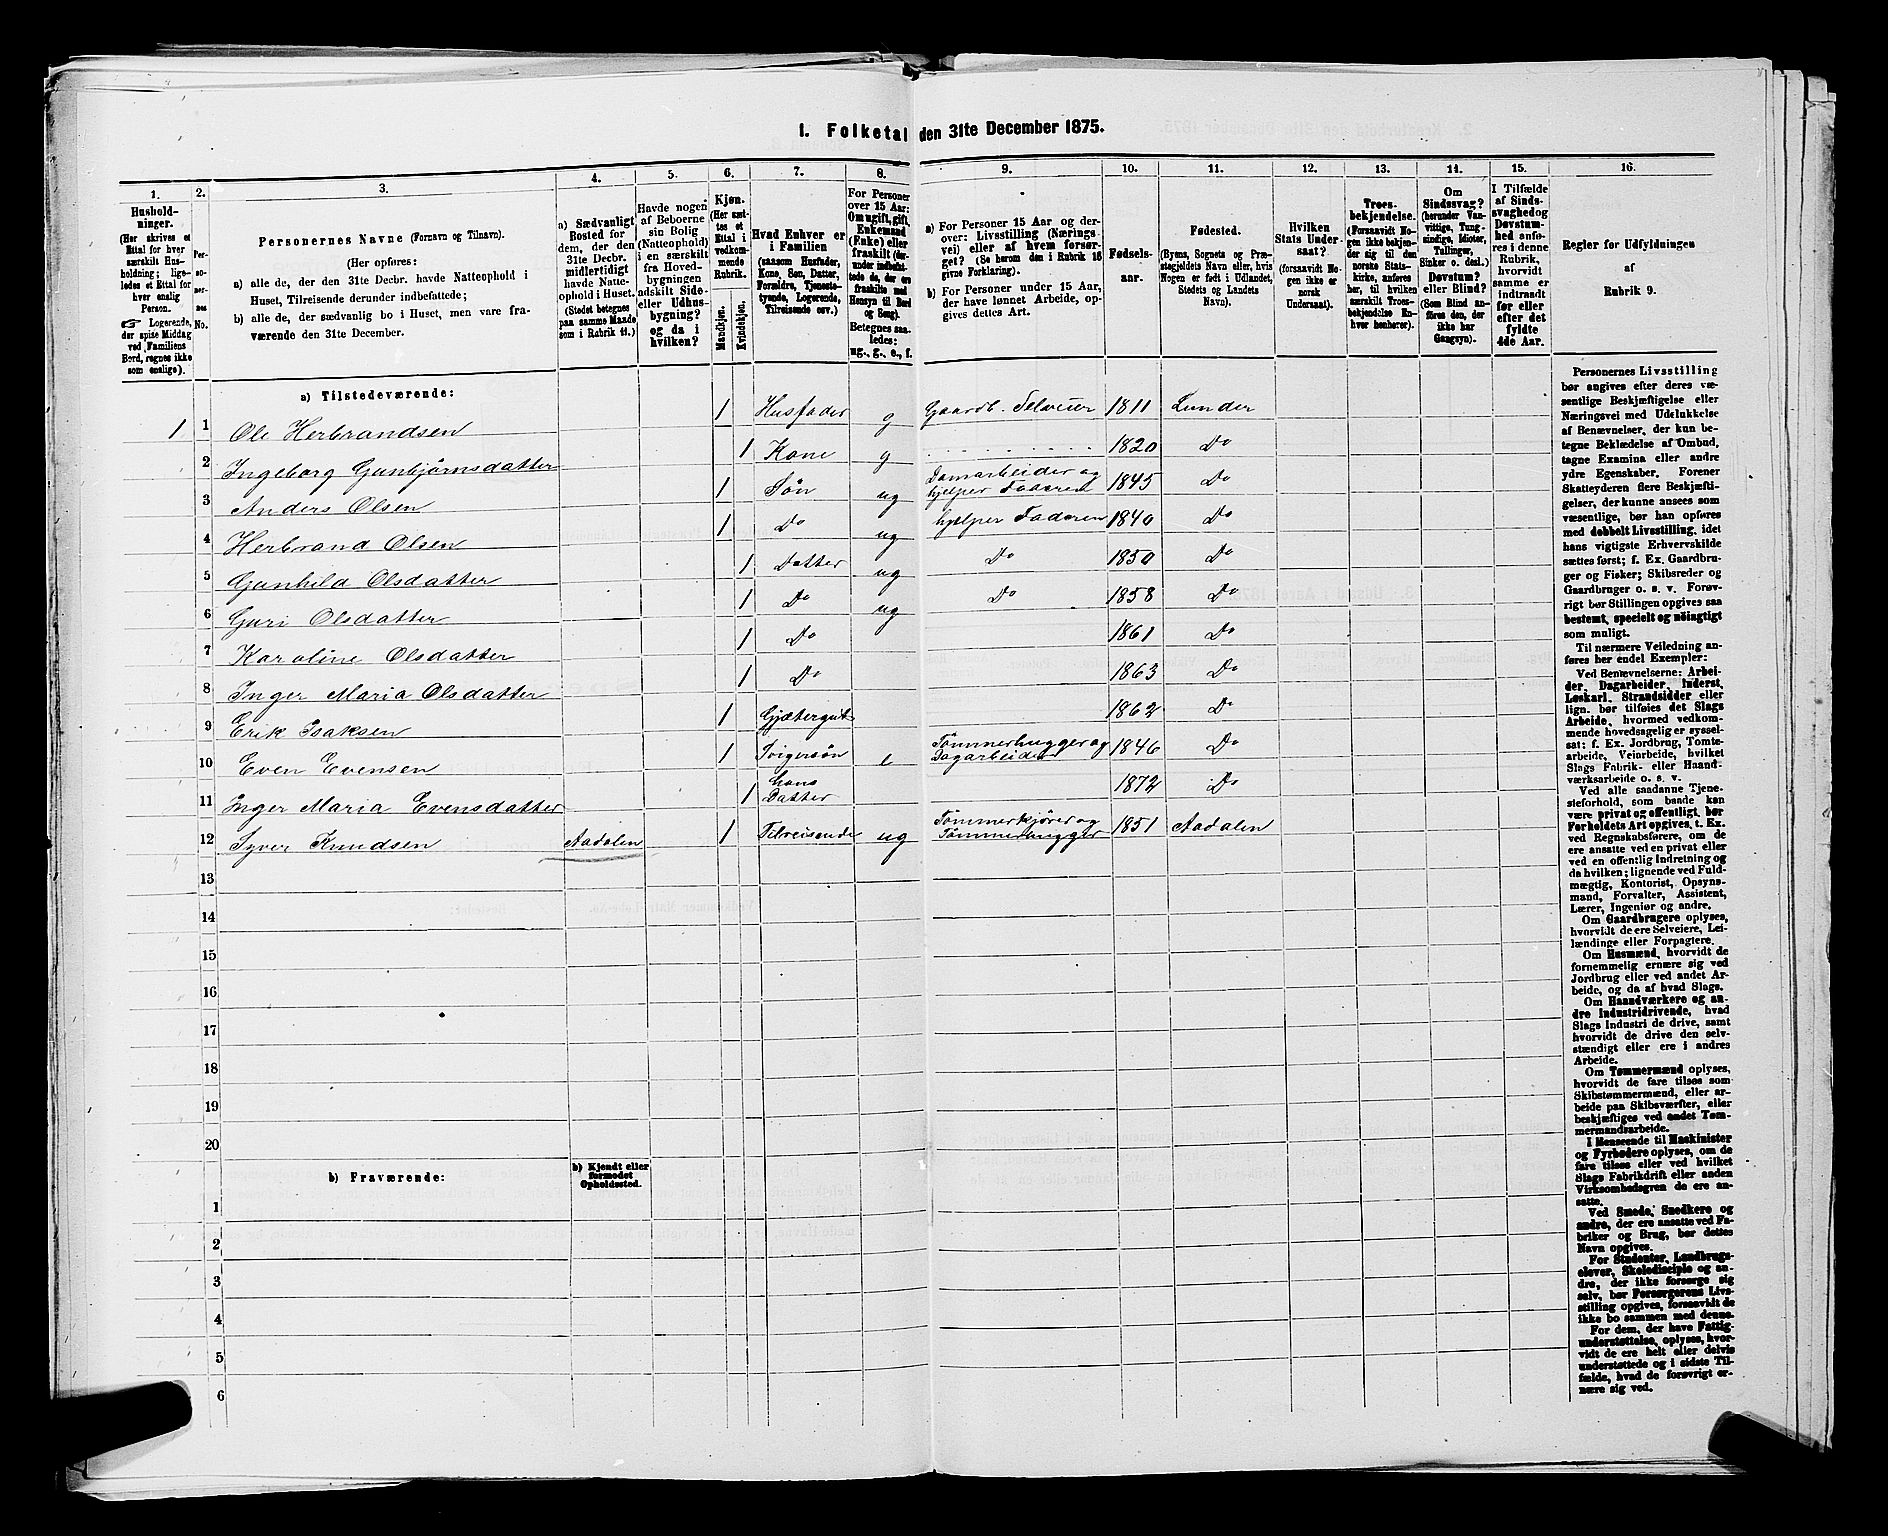 1. Folketal den 31te December 1875.
1.
2.
3.
4.
5.
6.
7.
8.
9.
10.
11.
12.
13.
14.
15.
16.
Hushold-
ninger.
(Her skrives et
Ettal for hver
særskilt Hus-
holdning; lige-
ledes et Ettal for
hver enslig
Person.
☞ Logerende,
der spise Middag
ved Familiens
Bord, regnes ikke
som enslige).
Per-
so-
ner-
nes
No.
Personernes Navne (Fornavn og Tilnavn).
(Her opføres:
a) alle de, der den 31te Decbr. havde Natteophold i
Huset, Tilreisende derunder indbefattede;
b) alle de, der sædvanlig bo i Huset, men vare fra-
værende den 31te December.
a) Sædvanligt
Bosted for
dem, der den
31te Decbr.
midlertidigt
havde Natte-
ophold i Huset.
(Stedet betegnes
paa samme Maade
som i Rubrik 11.)
Havde nogen
af Beboerne
sin Bolig
(Natteophold)
i en særskilt
fra Hoved-
bygningen
adskilt Side-
eller Udhus-
bygning?
og da i
hvilken?
Kjøn.
(Her sæt-
tes et
Ettal i
vedkom-
mende
Rubrik.
Mandkjøn.
Kvindekjøn.
Hvad Enhver er
i Familien
(saasom Husfader,
Kone, Søn, Datter,
Forældre, Tjeneste-
tyende, Logerende,
Tilreisende osv.)
For Personer
over 15 Aar:
Om ugift, gift
Enkemand
(Enke) eller
fraskilt (der-
under indbefat-
tede de, der ere
fraskilte med
Hensyn til Bord
og Seng).
Betegnes saa-
ledes:
ug., g., e., f.
a) For Personer 15 Aar og der-
over: Livsstilling (Nærings-
vei) eller af hvem forsør-
get? (Se herom den i Rubrik 16
givne Forklaring).
b) For Personer under 15 Aar,
der have lønnet Arbeide, op-
gives dettes Art.
Fødsels-
aar.
Fødested.
(Byens, Sognets og Præ-
stegjeldets Navn eller, hvis
Nogen er født i Udlandet,
Stedets og Landets
Navn).
Hvilken
Stats Under-
saat?
(forsaavidt No-
gen ikke er
norsk
Undersaat).
Troes-
bekjendelse.
(Forsaavidt No-
gen ikke bekjen-
der sig til den
norske Stats-
kirke, anføres
her, til hvilken
særskilt Troes-
bekjendelse En-
hver henhører).
Om
Sindssvag?
(herunder Van-
vittige, Tung-
sindige, Idioter,
Tullinger,
Sinker o. desl.)
Døvstum?
eller Blind?
(Som Blind an-
føres den, der
ikke har
Gangsyn).
I Tilfælde
af Sinds-
svaghed og
Døvstum-
hed anfø-
res i denne
Rubrik,
hvorvidt
samme er
indtraadt
før eller
efter det
fyldte
4de Aar.
Regler for Udfyldningen
af
Rubrik 9.
a) Tilstedeværende:
1 1 Ole Herbrandsen 1 Husfader g Gaardb. Selveier 1811 Lunder
2 Ingeborg Gunbjørnsdatter 1 Kone g . . . . . . . . . . 1820 Do
3 Anders Olsen 1 Søn ug Damarbeider og
hjelper Faderen 1845 Do
4 Herbrand Olsen 1 Do ug hjelper Faderen 1840 Do
5 Gunhild Olsdatter 1 Datter ug Do 1850 Do
6 Guri Olsdatter 1 Do ug Do 1858 Do
7 Karoline Olsdatter 1 Do 1861 Do
8 Inger Maria Olsdatter 1 Do 1863 Do
9 Erik Isaksen 1 Gjætergut 1862 Do
10 Even Evensen 1 Svigersøn e Tømmerhugger og
Dagarbeider 1846 Do
11 Inger Maria Evensdatter 1 Hans
Datter 1872 Do
12 Syver Knudsen Aadalen 1 Tilreisende ug Tømmerkjører og
Tømmerhugger 1851 Aadalen
13
14
15
16
17
18
19
20
b) Fraværende:
b) Kjendt eller
formodet
Opholdssted.
1
2
3
4
5
6
Personernes Livsstilling
bør angives efter deres væ-
sentlige Beskjæftigelse eller
Næringsvei med Udelukkelse
af Benævnelser, der kun be-
tegne Beklædelse af Ombud,
tagne Examina eller andre
ydre Egenskaber. Forener
Skatteyderen flere Beskjæfti-
gelser, der kunne ansees som
væsentlige, bør han opføres
med dobbelt Livsstilling, idet
hans vigtigste Erhvervskilde
sættes først; f. Ex. Gaardbru-
ger og Fisker; Skibsreder og
Gaardbruger o. s. v. Forøv-
rigt bør Stillingen opgives saa
bestemt, specielt og nøiagtigt
som muligt.
Til nærmere Veiledning an-
føres her endel Exempler:
Ved Benævnelserne: Arbei-
der, Dagarbeider, Inderst,
Løskarl, Strandsidder eller
lign. bør tilføies det Slags
Arbeide, hvormed vedkom-
mende hovedsagelig er syssel-
sat: f. Ex. Jordbrug, Tomte-
arbeide, Veiarbeide, hvilket
Slags Fabrik- eller Haand-
værksarbeide o. s. v.
Ved alle saadanne Tjene-
steforhold, som baade kan
være privat og offentligt, bør
Forholdets Art opgives, t. Ex.
ved Regnskabsførere, om de
ere ansatte ved en privat eller
ved en offentlig Indretning og
da hvilken; lignende ved Fuld-
mægtig, Kontorist, Opsyns-
mand, Forvalter, Assistent,
Lærer, Ingeniør og andre.
Om Gaardbrugere oplyses,
hvorvidt de ere Selveiere, Lei-
lændinge eller Forpagtere.
Om Husmænd, hvorvidt de
fornemmelig ernære sig ved
Jordbrug eller ved andet Ar-
beide, og da af hvad Slags.
Om Haandværkere og an-
dre Industridrivende, hvad
Slags Industri de drive, samt
hvorvidt de drive den selv-
stændigt eller ere i andres
Arbeide.
Om Tømmermænd oplyses,
hvorvidt de fare tilsøs som
Skibstømmermænd, eller ar-
beide paa Skibsværfter, eller
beskjæftiges ved andet Tøm-
mermandsarbeide.
I Henseende til Maskinister
og Fyrbødere oplyses, om de
fare tilsøs eller ved hvilket
Slags Fabrikdrift eller anden
Virksomhedsgren de ere an-
satte.
Ved Smede, Snedkere og
andre, der ere ansatte ved Fa-
briker og Brug, bør dettes
Navn opgives.
For Studenter, Landbrugs-
elever, Skoledisciple og an-
dre, der ikke forsørge sig
selv, bør Forsørgerens Livs-
stilling opgives, forsaavidt de
ikke bo sammen med denne.
For dem, der have Fattig-
understøttelse, oplyses, hvor-
vidt de ere helt eller delvis
understøttede og i sidste Til-
fælde, hvad de forøvrigt er-
nære sig ved.